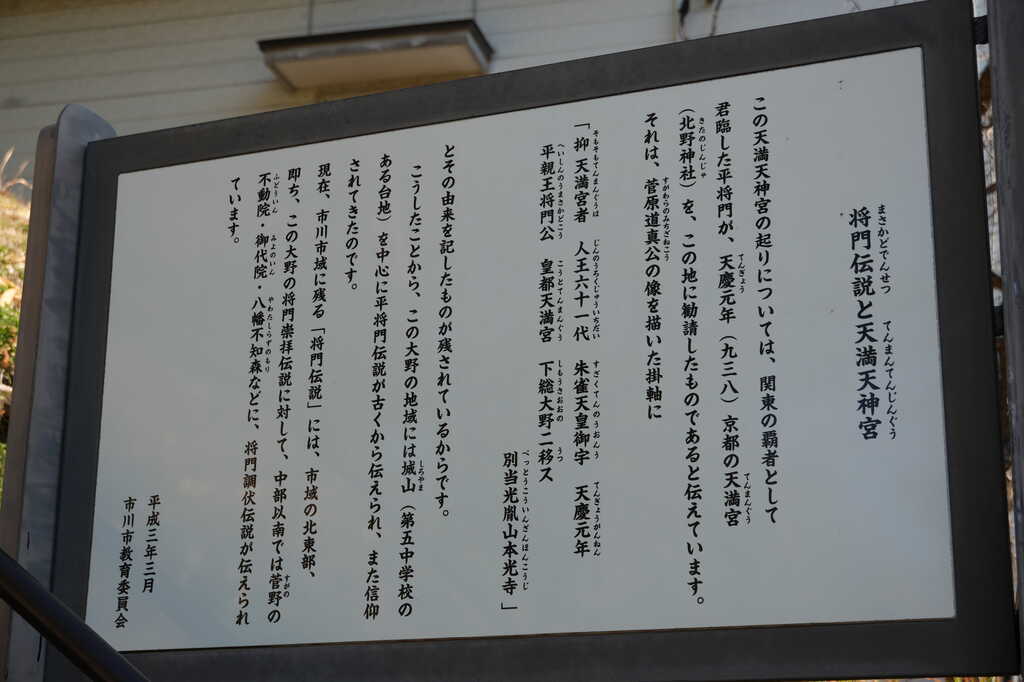 将門伝説と天満天神宮
この天満天神宮の起りについては、関東の覇者として
君臨した平将門が、天慶元年（九三八）京都の天満宮
（北野神社）を、この地に勧請したものであると伝えています。
それは、菅原道真公の像を描いた掛軸に
「抑天満宮者　人王六十一代　朱雀天皇御宇　天慶元年
平親王将門公　皇都天満宮　下総大野二移ス
別当光胤山本光寺」
とその由来を記したものが残されているからです。
こうしたことから、この大野の地域には城山（第五中学校の
ある台地）を中心に平将門伝説が古くから伝えられ、また信仰
されてきたのです。
現在、市川市域に残る「将門伝説」には、市域の北東部、
即ち、この大野の将門崇拝伝説に対して、中部以南では菅野の
不動院・御代院・八幡不知森などに、将門調伏伝説が伝えられ
ています。
平成三年三月
市川市教育委員会